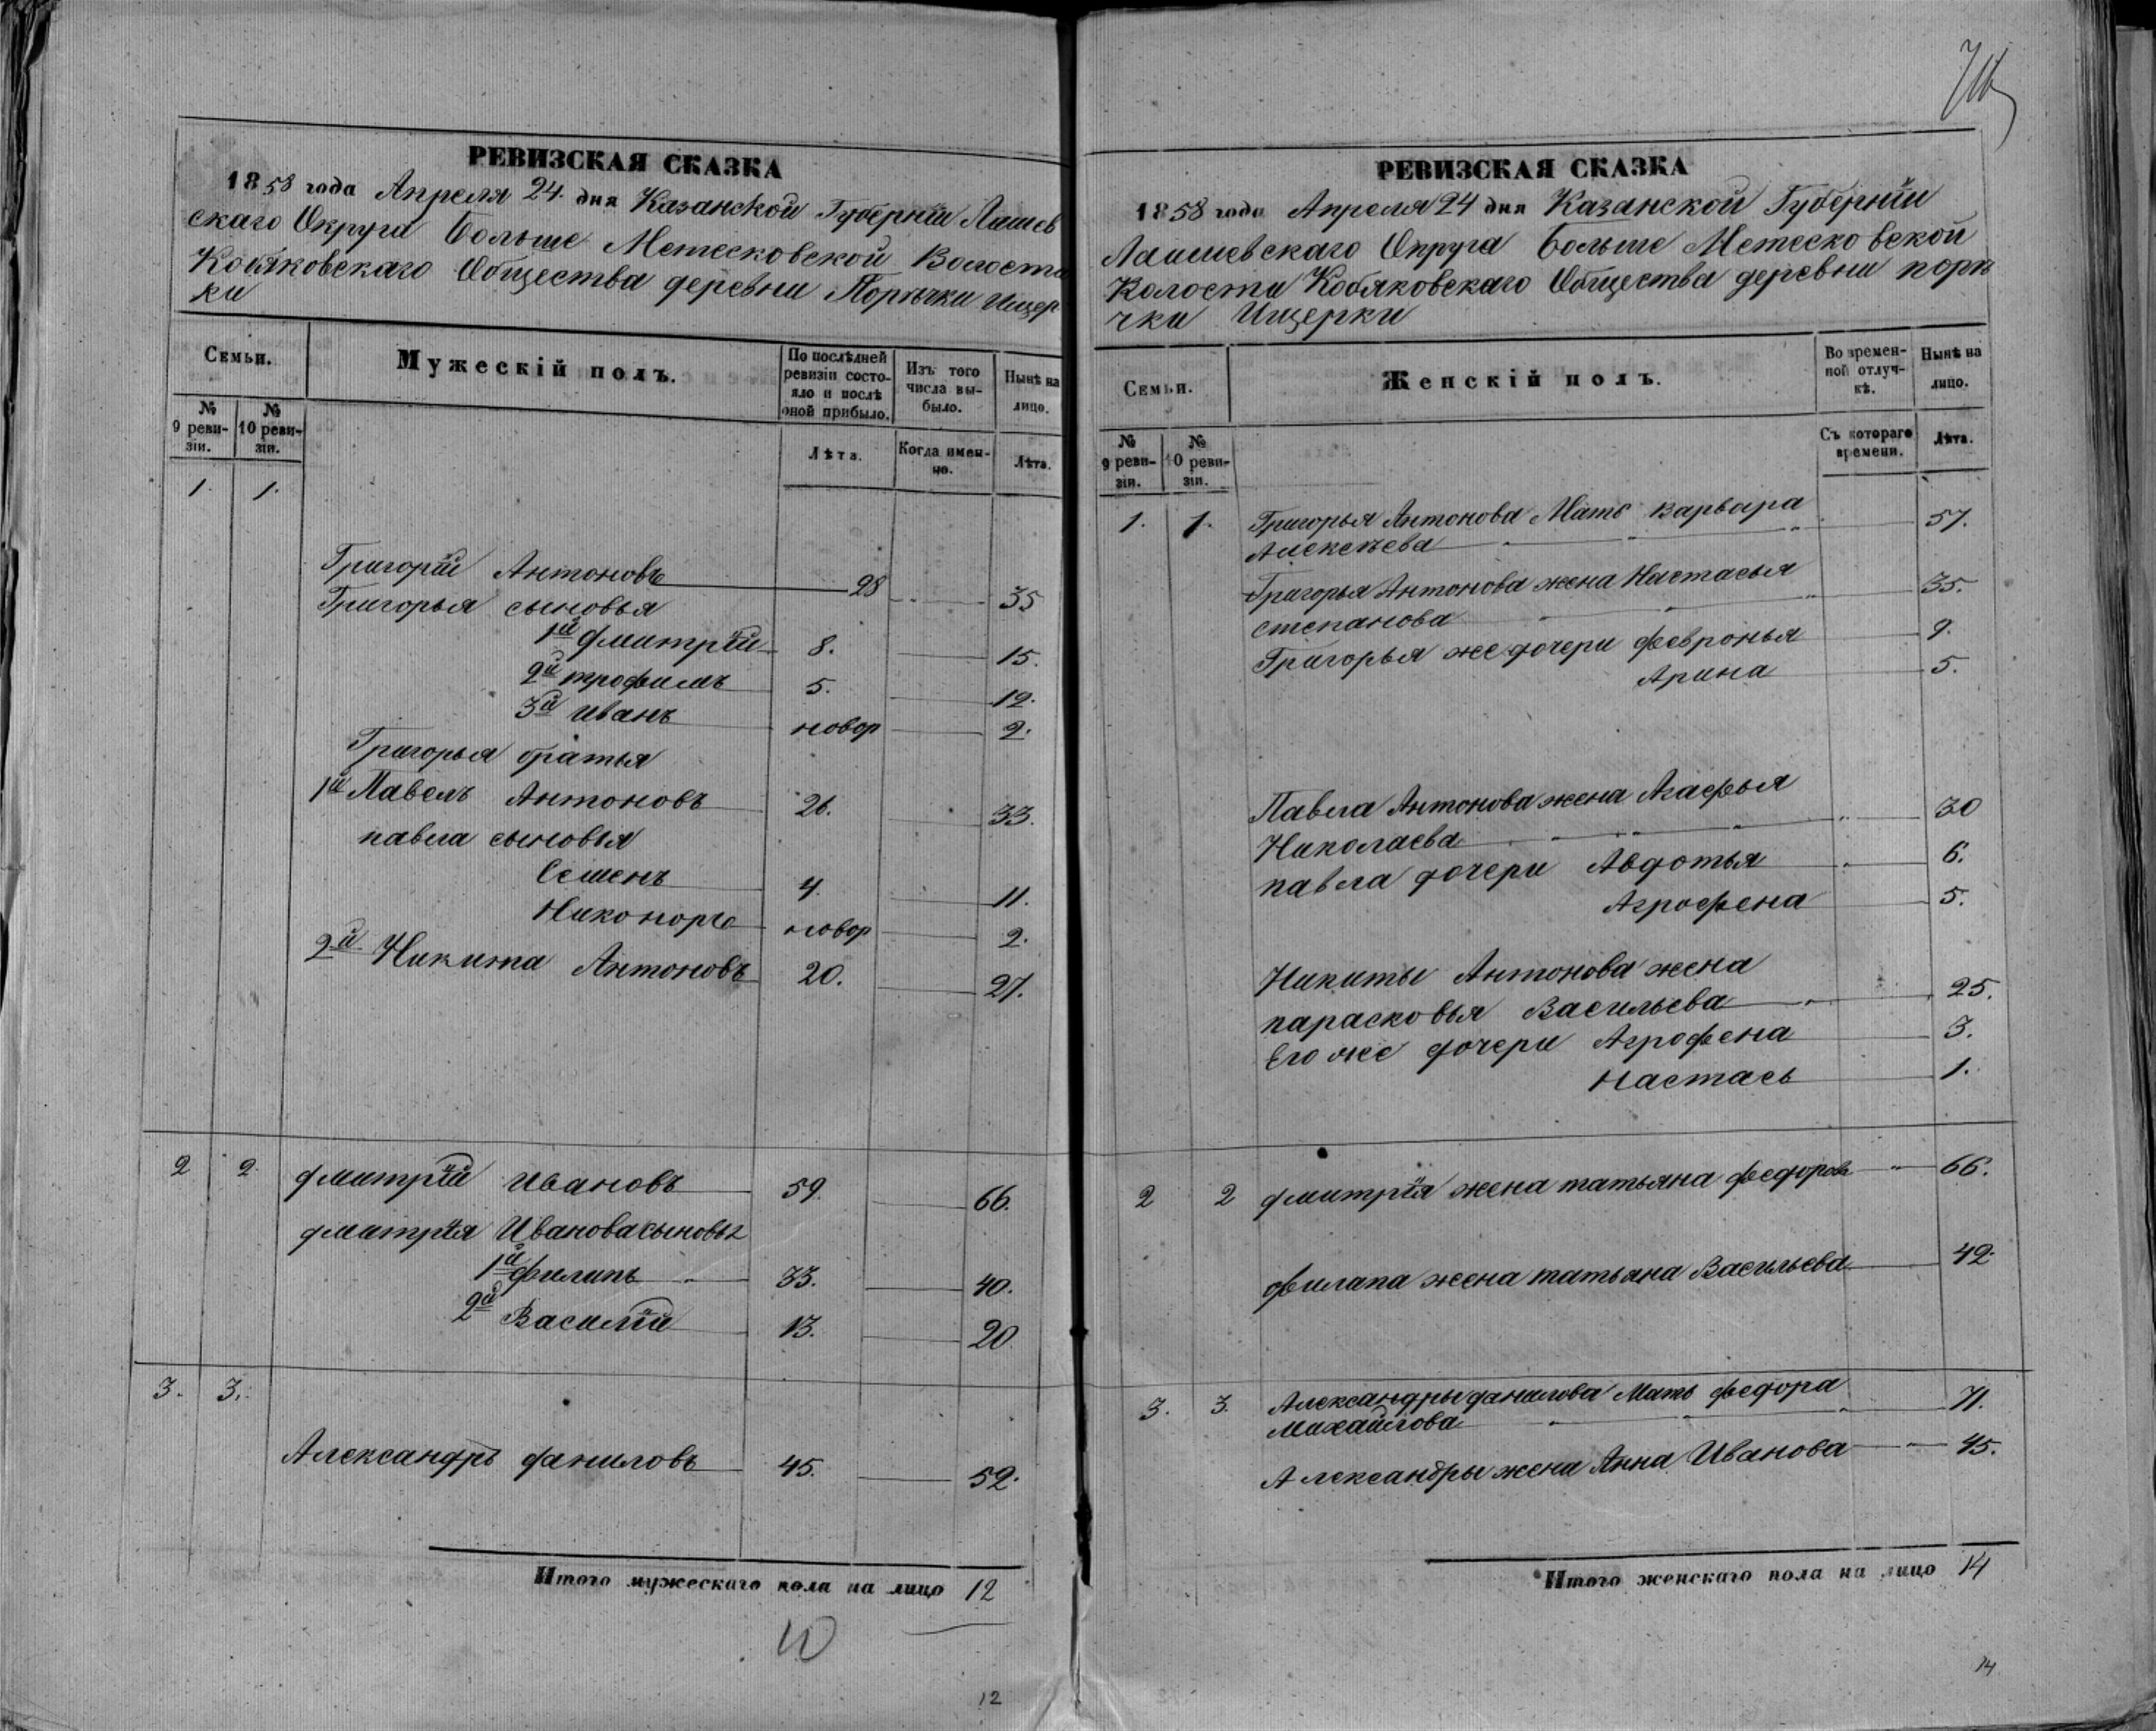 РЕВИЗСКАЯ СКАЗКА
1858 года Апреля 24. дня Казанской Губернiи Лаишев
скаго Округа Больше Метесковской Волости
Кобяковскаго Общества деревни Порѣчки Ищер
ки
Семьи.
Мужескiй полъ.
По послѣдней ревизiи состояло и послѣ оной прибыло.
Изъ того числа выбыло.
Нынѣ на лицо.
№ 9 ревизiи.
№ 10 ревизiи.
Лѣта.
Когда именно.
Лѣта.
1. 1.
Григорiй Антоновъ 28 35
Григорья сыновья
1й Дмитрiй 8. 15.
2й трофимъ 5. 12.
3й иванъ новор 2.
Григорья братья
1й Павелъ Антоновъ 26. 33.
павла сыновья
Семенъ 4. 11.
Никоноръ новор 2.
2й Никита Антоновъ 20. 27.
2 2. дмитрiй Ивановъ 59. 66.
дмитрiя Иванова сыновья
1й филипъ 33. 40.
2й Василiй 13. 20
3. 3.
Александръ даниловъ 45. 52.
Итого мужескаго пола на лицо 12
12
РЕВИЗСКАЯ СКАЗКА
1858 года Апреля 24 дня Казанской Губернiи
Лаишевскаго Округа Больше Метесковской
Волости Кобяковскаго Общества деревни порѣ
чки Ищерки
Семьи.
Женскiй полъ.
Во временной отлучкѣ.
Нынѣ на лицо.
№ 9 ревизiи.
№ 10 ревизiи.
Съ котораго времени.
Лѣта.
1. 1. Григорья Антонова Мать варвара
Алексѣева 57.
Григорья Антонова жена Настасья
степанова 35.
Григорья же дочери февронья 9.
Арина 5.
Павла Антонова жена Агафья
Николаева 30
павла дочери Авдотья 6.
Агрофена 5.
Никиты Антонова жена
парасковья Васильева 25.
Его же дочери Агрофена 3.
настась 1.
2 2 дмитрiя жена татьяна федоров 66.
филипа жена татьяна Васильева 42
3. 3. Александры данилова Мать федора
михайлова 71.
Александры жена Анна Иванова 45.
Итого женскаго пола на лицо 14
14